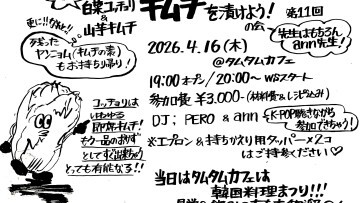 白菜コッチョリ
&
山芋キムチ
キムチを漬けよう!
の会
第11回
先生はもちろん
ann先生!
更に!!なんと!!
残った
ヤンニョム(キムチの素)
もお持ち帰り!
2026.4.16(木)
@タムタムカフェ
19:00 オープン/20:00〜 WSスタート
参加費 ¥3,000-(材料費&レシピ込み)
DJ; PERO & ann
K-POP聴きながら
参加できちゃう!
※エプロン&持ちかえり用タッパー×2コ
はご持参ください♡
コッチョリは
いわゆる
即席キムチ!
もう一品のおかず
としてすぐ出来ちゃう
とっても有能なる!!
当日はタムタムカフェは
韓国料理まつり!!!